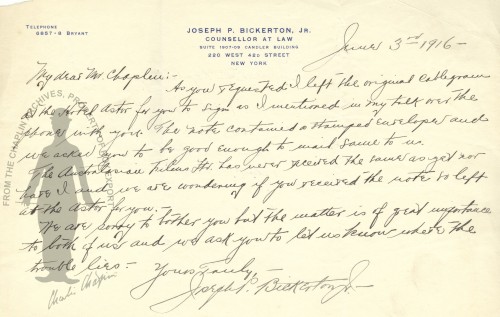 TELEPHONE
6857-8 BRYANT
JOSEPH P. BICKERTON, JR.
COUNSELLOR AT LAW
SUITE 1907-09 CANDLER BUILDING
220 WEST 42D STREET
NEW YORK
June 3rd 1916-
My dear Mr Chaplin:-
As you requested I left the original cablegram
at the Hotel Astor for you to sign as I mentioned in my talk over the
phone with you. The note contained a stamped envelope and
we asked you to be good enough to mail same to us.
The Australasian Films Ltd. has never received the same as yet nor
have I and we are wondering if you received the note so left
at the Astor for you.
We are sorry to bother you but the matter is of great importance
to both of us and we ask you to let us know where the
trouble lies-
Yours Truly,
Joseph P. Bickerton Jr-
FROM THE CHAPLIN ARCHIVES, PROPERTY OF
Charlie Chaplin